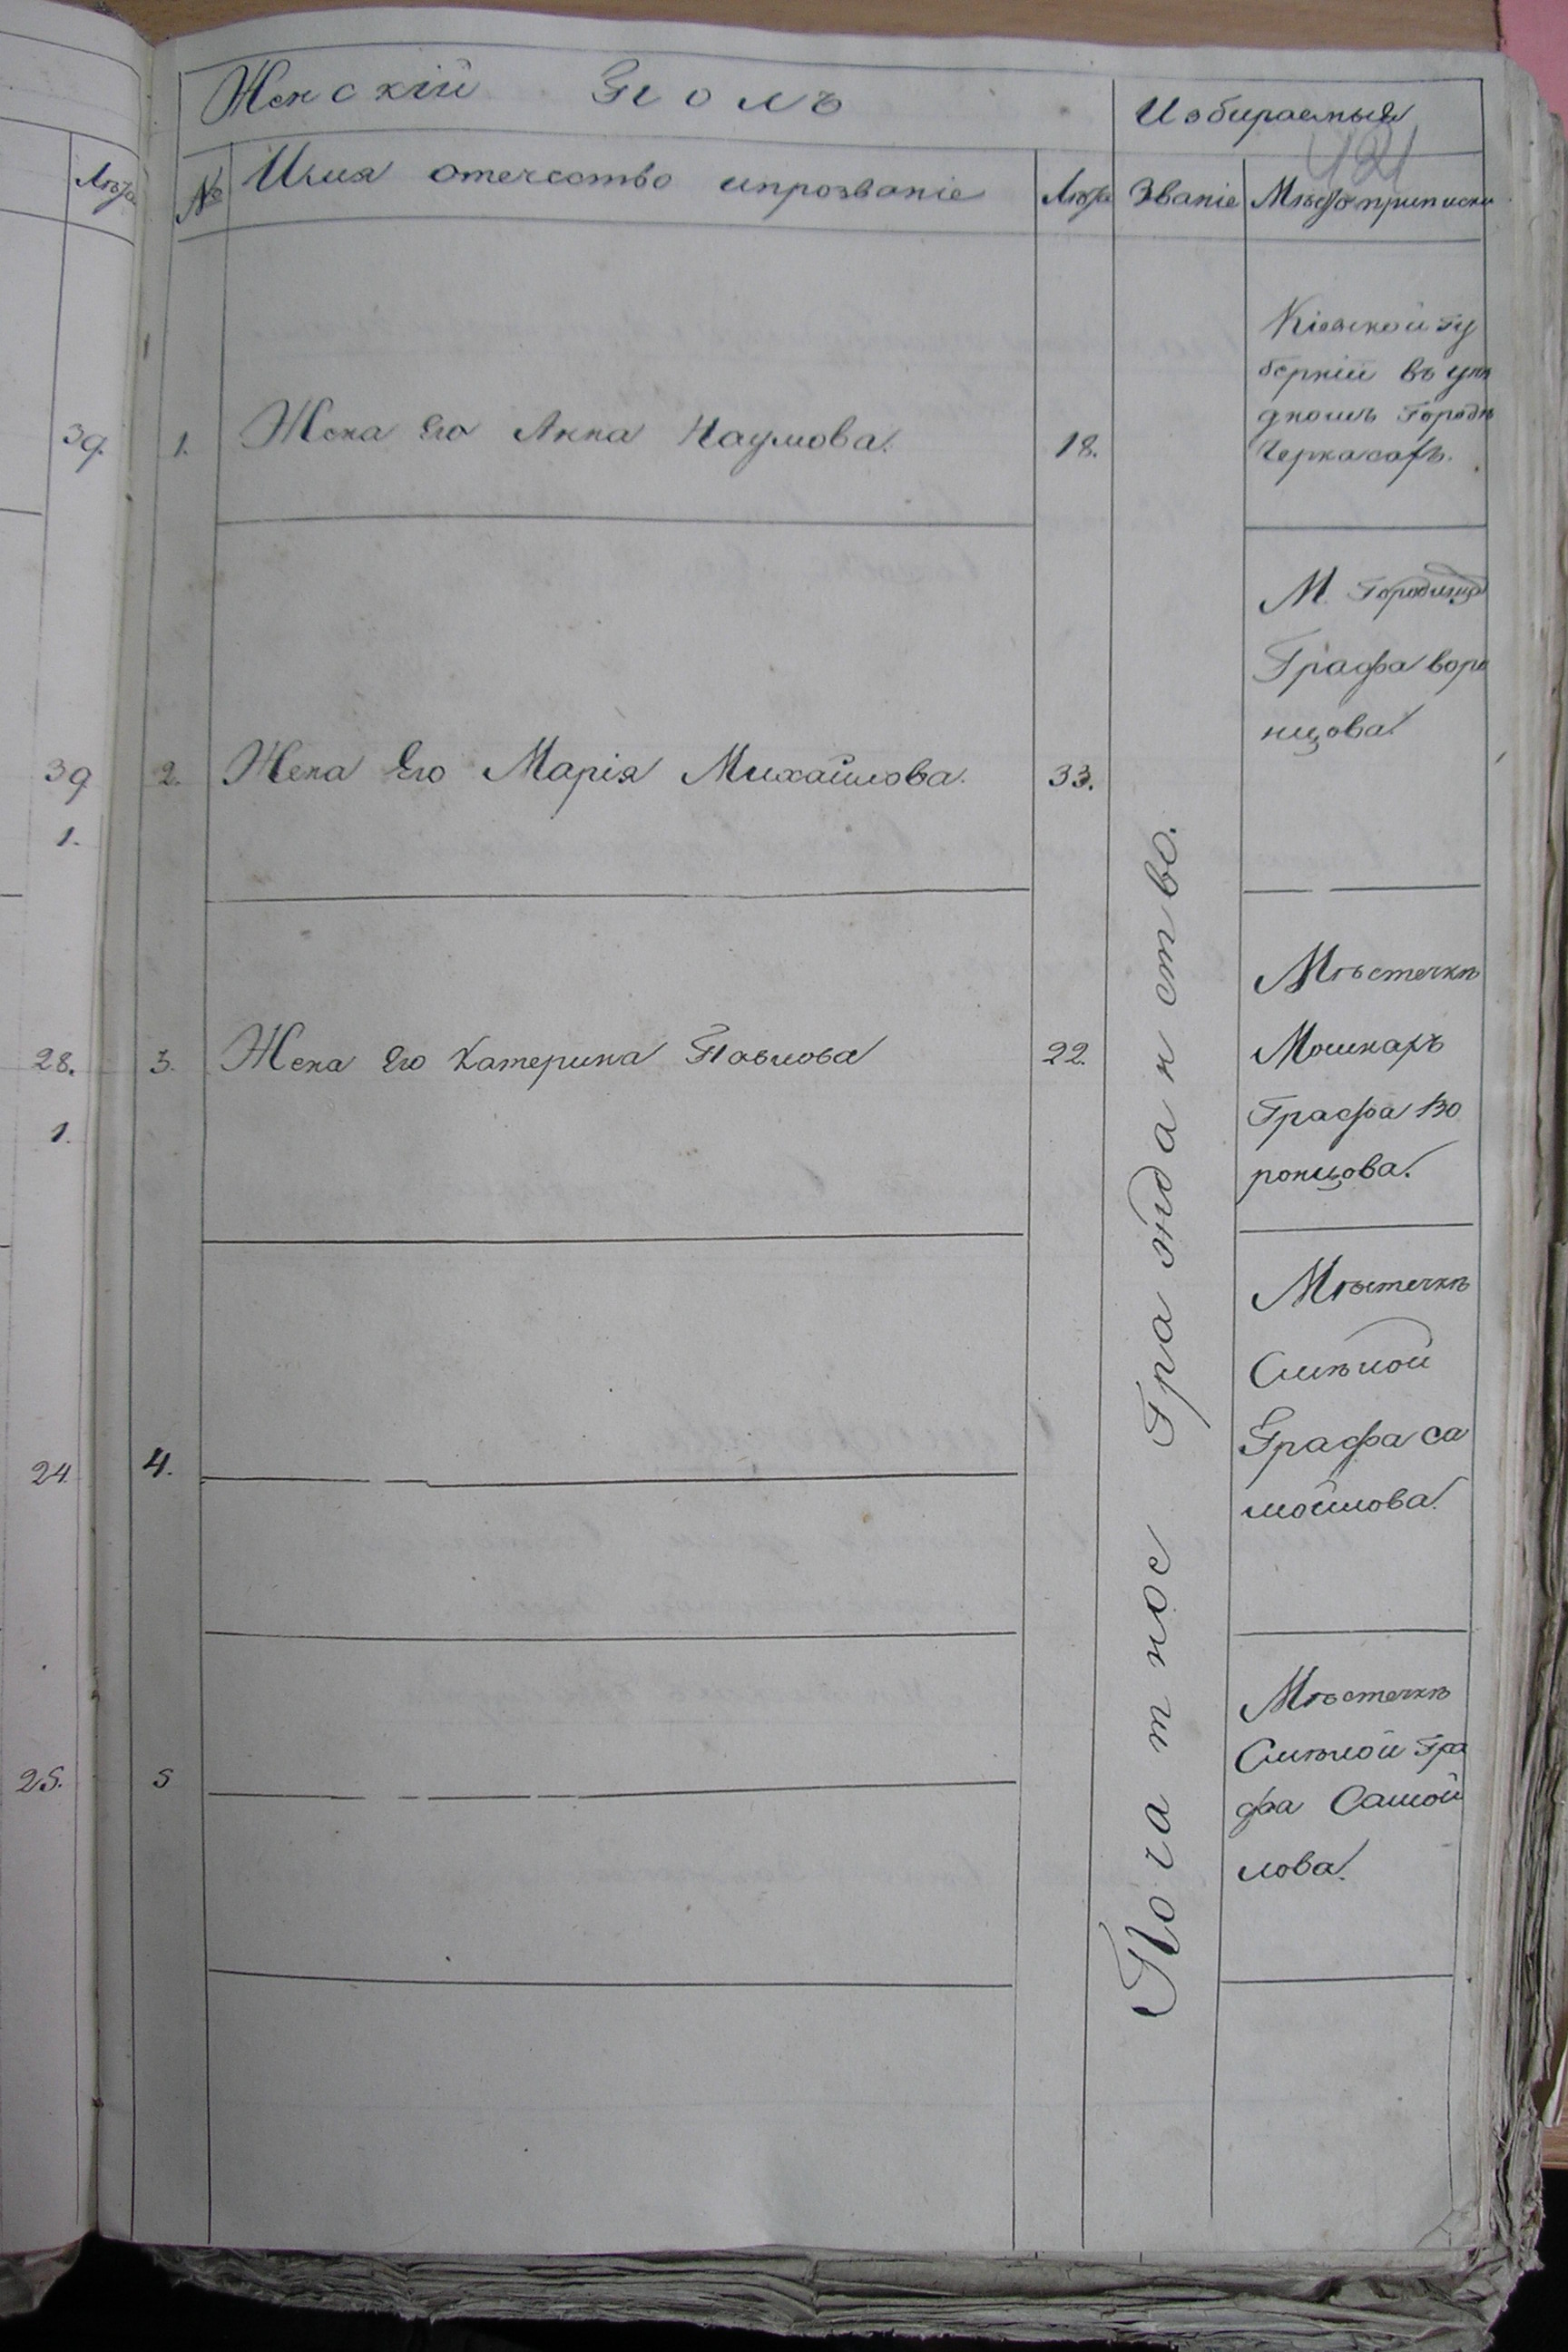 Женскій Полъ
Избираемыя
421
Лѣта
№
Имя отечество ипрозваніе
Лѣта
Званіе
Мѣсто приписки
39.
1.
Жена Его Анна Наумова.
18.
Кіевской гу
берніи въ уѣз
дномъ Городѣ
Черкасахъ.
39
1.
2.
Жена Его Марія Михайлова.
33.
М. Городища
Графа воро
нцова.
28.
1.
3.
Жена Его Катерина Павлова
22.
Мѣстечкѣ
Мошнахъ
Графа Во
ронцова.
24.
4.
Мѣстечкѣ
Смѣлой
Графа са
мойлова.
25.
5
Мѣстечкѣ
Смѣлой Гра
фа Самой
лова.
Початное Гражданство.